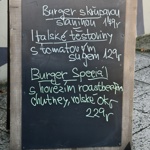 Burger s křupavou
slaninou 149,-
Italské těstoviny
s tomatovým
sugem 129,-
Burger Speciál
s hovězím roastbeefem,
chutney, volské oko
229,-